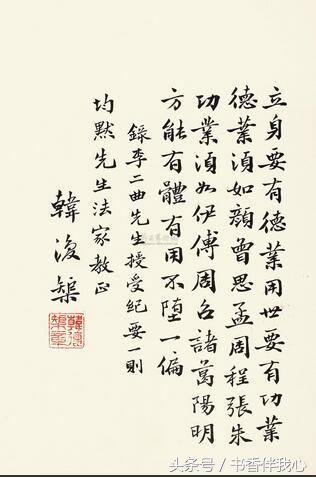 立身要有德業用世要有功業
德業湏如顔曾思孟周程張朱
功業湏如伊傅周召諸葛陽明
方能有體有用不墮一偏
錄李二曲先生授受紀要一則
均默先生法家教正
韓復榘
韓復榘章
头条号／书香伴我心